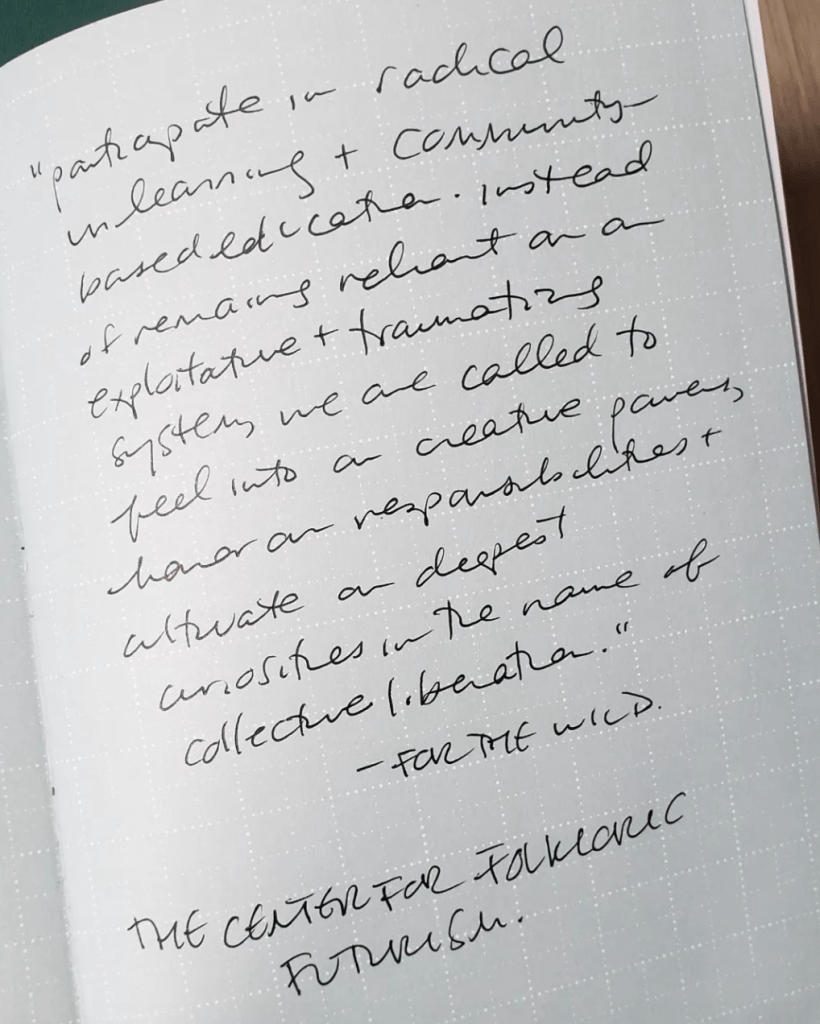 "participate in radical
unlearning + community-
based education. instead
of remaining reliant on an
exploitative + traumatizing
system, we are called to
feel into our creative powers,
honor our responsibilities +
cultivate our deepest
curiosities in the name of
collective liberation."
- FOR THE WILD.
THE CENTER FOR FOLKLORIC
FUTURISM.